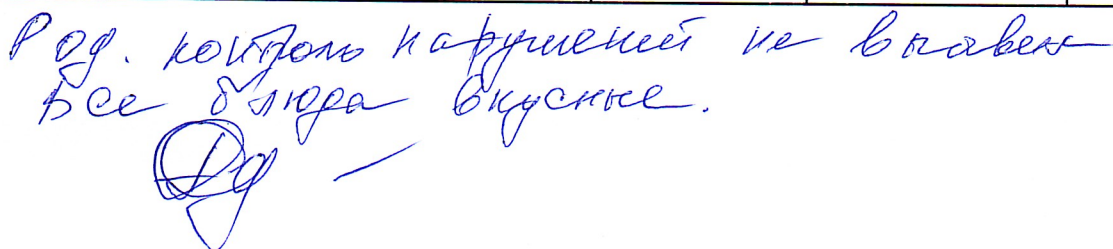 Род. контроль нарушений не выявен
Все блюда вкусные.